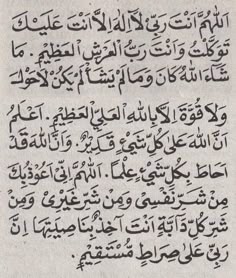 اَللّٰهُمَّ اَنْتَ رَبِّيْ لَآ اِلٰهَ اِلَّآ اَنْتَ عَلَيْكَ
تَوَكَّلْتُ وَاَنْتَ رَبُّ الْعَرْشِ الْعَظِيْمِ. مَا
شَآءَ اللّٰهُ كَانَ وَمَا لَمْ يَشَأْ لَمْ يَكُنْ لَاحَوْلَ
وَلَا قُوَّةَ اِلَّا بِاللّٰهِ الْعَلِيِّ الْعَظِيْمِ. اَعْلَمُ
اَنَّ اللّٰهَ عَلٰى كُلِّ شَيْءٍ قَدِيْرٌ. وَاَنَّ اللّٰهَ قَدْ
اَحَاطَ بِكُلِّ شَيْءٍ عِلْمًا. اَللّٰهُمَّ اِنِّيْ اَعُوْذُ بِكَ
مِنْ شَرِّ نَفْسِيْ وَمِنْ شَرِّ غَيْرِيْ وَمِنْ
شَرِّ كُلِّ دَآبَّةٍ اَنْتَ اٰخِذٌ بِنَاصِيَتِهَا اِنَّ
رَبِّيْ عَلٰى صِرَاطٍ مُسْتَقِيْمٍ.